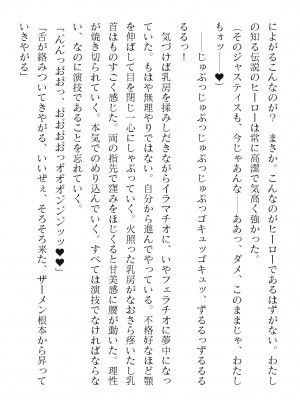 によがるこんなのが？　まさか。こんなのがヒーローであるはずがない。わたし
の知る伝説のヒーローは常に高潔で気高く強かった。
（そのジャスティスも、今じゃあんな――ああっ、ダメ、このままじゃ、わたし
もォッ――♥）
――じゅぶっじゅぶっじゅぶっじゅぶっゴキュッゴキュッ、ずるるっずるるる
るるっ！
気づけば乳房を揉みしだきながらイラマチオに、いやフェラチオに夢中になっ
ていた。もはや無理やりではない。自分から進んでやっている。不格好なほど顎
を伸ばして目を閉じ一心にしゃぶっていく。火照った乳房がなおさら疼いたし乳
首はものすごく感じた。両の指先で窪みをほじくると甘美感に腰が動いた。理性
が焼き切られていく。本気でのめり込んでいく。すべては演技でなければならな
い、なのに演技であることを忘れていく。
「んんっおおっ、おおおおっオオオンンジッッ♥♥」
『舌が絡みついてきやがる、いいぜぇ、そろそろ来た、ザーメン根本から昇って
いきやがる』